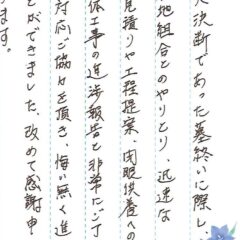 決断であった墓終いに際し、
地組合とのやりとり、迅速な
見積りや工程提案、閉眼供養への
体工事の進捗報告と非常にご丁
対応ご協力を頂き、悔い無く進
とができました、改めて感謝申
ます。